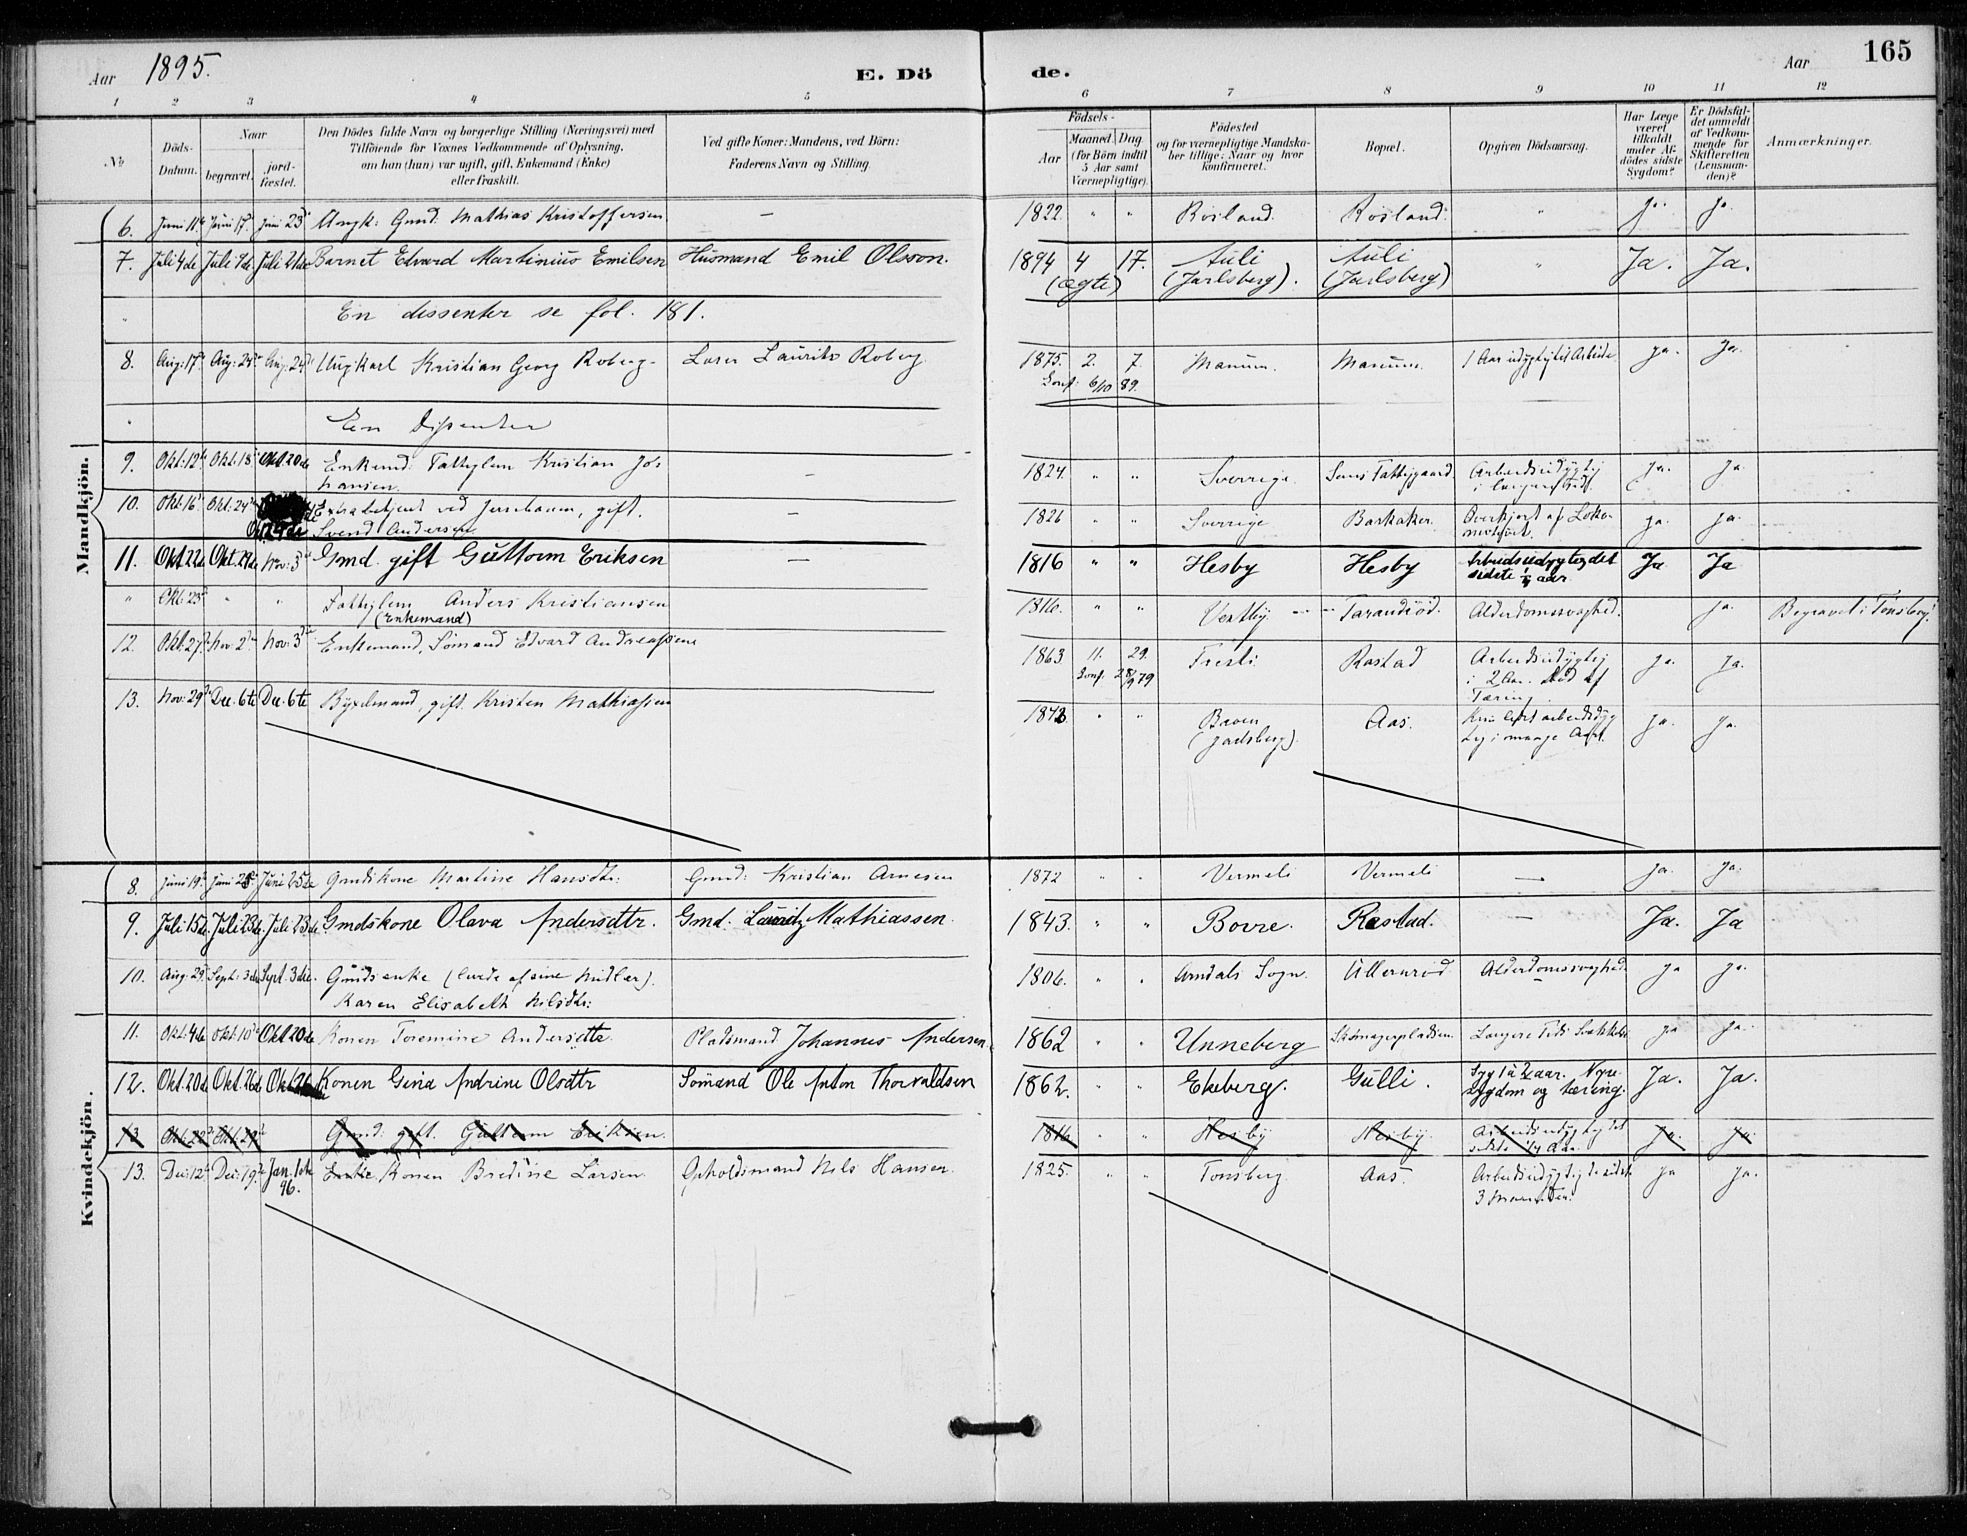 Aar 1895. E. Dö de. Aar 165
1 2 3 4 5 6 7 8 9 10 11 12
No Döds-Datum. Naar begravet. jord-fæstet. Den Dödes fulde Navn og borgerlige Stilling (Næringsvei) med Tilföiende for Voxnes Vedkommende af Oplysning, om han (hun) var ugift, gift, Enkemand (Enke) eller fraskilt. Ved gifte Koner: Mandens, ved Börn: Faderens Navn og Stilling. Födsels- Aar Maaned. Dag. (for Börn indtil 5 Aar samt Værnepligtige). Födested og for værnepligtige Mandskaber tillige: Naar og hvor konfirmeret. Bopæl. Opgiven Dödsaarsag. Har Læge været tilkaldt under Afdödes sidste Sygdom? Er Dödsfaldet anmeldt af Vedkommende for Skifteretten (Lensmanden)? Anmærkninger.
Mandkjön.
6. Juni 11te Juni 17de Juni 23de Ungk: Gmd: Mathias Kristoffersen — 1822 " " Rosland. Rosland. " ja ja.
7. Juli 4de Juli 7de Juli 21de Barnet Edvard Martinius Emilsen Husmand Emil Olsson. 1894 4 17. Auli Auli " Ja. Ja.
(ægte) (Jarlsberg). (Jarlsberg)
" En dissenter se fol. 181.
8. Aug: 17de Aug: 24de Aug: 24de Ungkarl Kristian Georg Roberg Laurits Roberg 1875. 2. 7. 1 Aar udygtig til Arbeide ja. Ja.
Konf: 6/10 89.
" En Dissenter
9. Okt: 12te Okt: 18de Okt 20de Enkemd: Fattiglem Kristian Johansen. — 1824 " " Sverrige. Sems Fattiggaard Arbeidsudygtig i længere Tid. ja. ja.
10. Okt: 16de Okt: 24de Okt 24de Extrabetjent ved Jernbanen, gift.
Svend Andersen — 1826 " " Sverrige Barkaker. Overkjørt af Lokomotivet. ja. ja.
11. Okt 22de Okt. 29de Nov: 3de Gmd. gift Guttorm Eriksen — 1816 " " Hesby Hesby Arbeidsudygtig det sidste ¼ aar Ja Ja
" Okt: 23de " " Fattiglem Anders Kristiansen
(Enkemand) 1816. " " Vestby Tarandrød. Alderdomssvaghed. ja. Begravet i Tønsberg.
12. Okt: 27de Nov 2den Nov: 3de Enkemand, Sømand Edvard Andreassen 1863 11. 29. Tresli Rastad Arbeidsudygtig i 2 Aar. Død af Tæring ja. ja.
Konf. 28/9 79
13. Nov: 29de Dec: 6te Dec: 6te Byxelmand, gift, Kristen Mathiassen 1843 " " Baven (Jarlsberg). Aas. arbeidsdygtig i mange Aar. ja. ja.
Kvindekjön.
8. Juni 19de Juni 25de Juni 25de Gmdskone Martine Hansdtr: Gmd: Kristian Arnesen 1872 " " Vermeli Vermeli — ja. ja.
9. Juli 15de Juli 23de Juli 23de Gmdskone Olava Andersdtr. Gmd. Lauritz Mathiassen. 1843. " " Borre. Rastad. — Ja. Ja
10. Aug: 29de Sept: 3die Sept. 3die. Gmds enke (levede af sine Midler).
Karen Elisabeth Nilsdtr: 1806. " " Arndals Sogn. Ullernrød. Alderdomssvaghed. ja ja.
11. Okt: 4de Okt: 10de Okt 20de Konen Toremine Andersdtr. Pladsmand Johannes Andersen 1862 " " Unneberg Skomagerpladsen. Længere Tids Svækkelse ja ja.
12. Okt. 20de Okt. 26de Okt 26 Konen Gina Andrine Olsdtr Sømand Ole Anton Thorvaldsen 1862. " " Ekeberg. Gulli. Syg 1 à 2 aar. Nyresygdom og tæring. Ja. Ja.
13 Okt: 22de Okt: 29de Gmd: gift. Guttorm Eriksen. 1816 " " Hesby Hesby. Arbeidsudygtig det sidste ¼ Aar. ja. ja.
13. Dec: 12te Dec: 19de Jan. 1ste 96. Enke Konen Bredine Larsen Opholdsmand Nils Hansen. 1825. " " Tønsberg Aas. Arbeidsudygtig de sidste 3 Maaneder. ja ja.